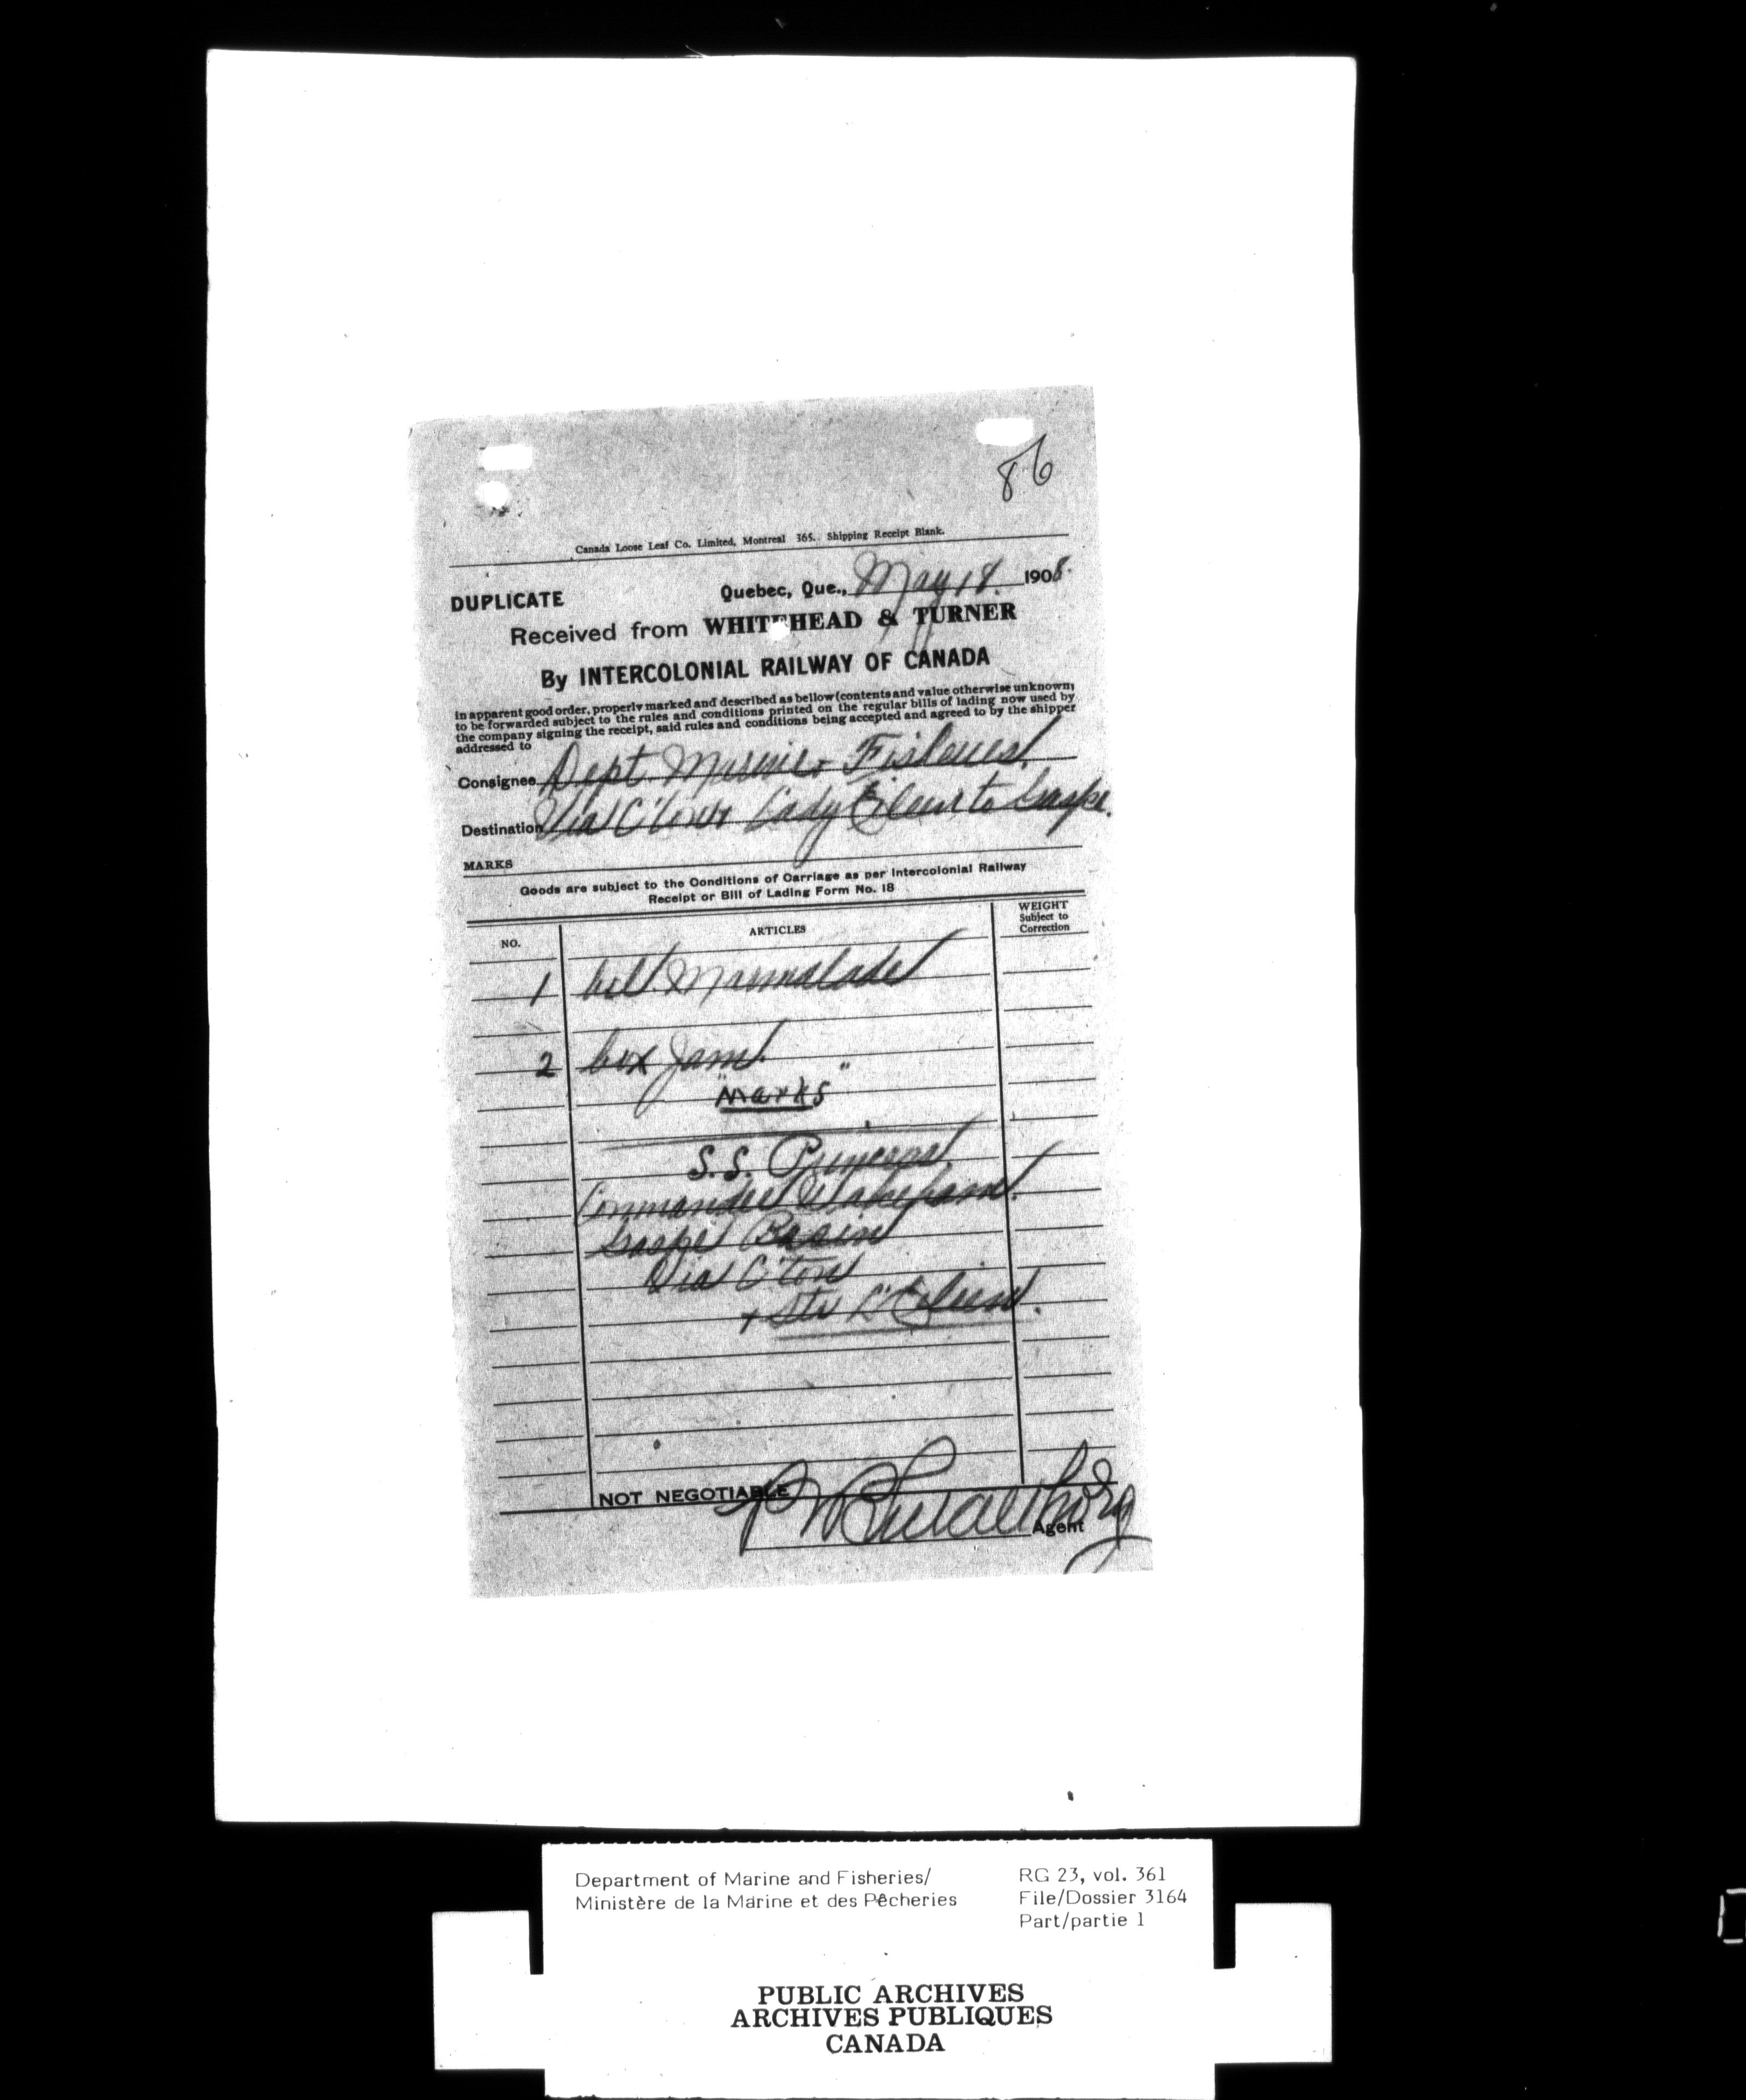 86
Canada Loose Leaf Co. Limited, Montreal 365. Shipping Receipt Blank.
DUPLICATE Quebec, Que., May 18 1908.
Received from WHITEHEAD & TURNER
By INTERCOLONIAL RAILWAY OF CANADA
in apparent good order, properly marked and described as bellow (contents and value otherwise unknown,
to be forwarded subject to the rules and conditions printed on the regular bills of lading now used by
the company signing the receipt, said rules and conditions being accepted and agreed to by the shipper
addressed to
Consignee Dept Marine & Fisheries
Destination Via C'ton Lady Eileen to Gaspe.
MARKS
Goods are subject to the Conditions of Carriage as per Intercolonial Railway
Receipt or Bill of Lading Form No. 18
NO. ARTICLES WEIGHT
Subject to
Correction
1 Marmalade
2 box Jam
"Marks"
S.S. Princess
Commander Wakeham.
Gaspe Basin
Via C'ton
+ Str L'Eileen.
NOT NEGOTIABLE
Agent
Department of Marine and Fisheries/
Ministère de la Marine et des Pêcheries
RG 23, vol. 361
File/Dossier 3164
Part/partie 1
PUBLIC ARCHIVES
ARCHIVES PUBLIQUES
CANADA